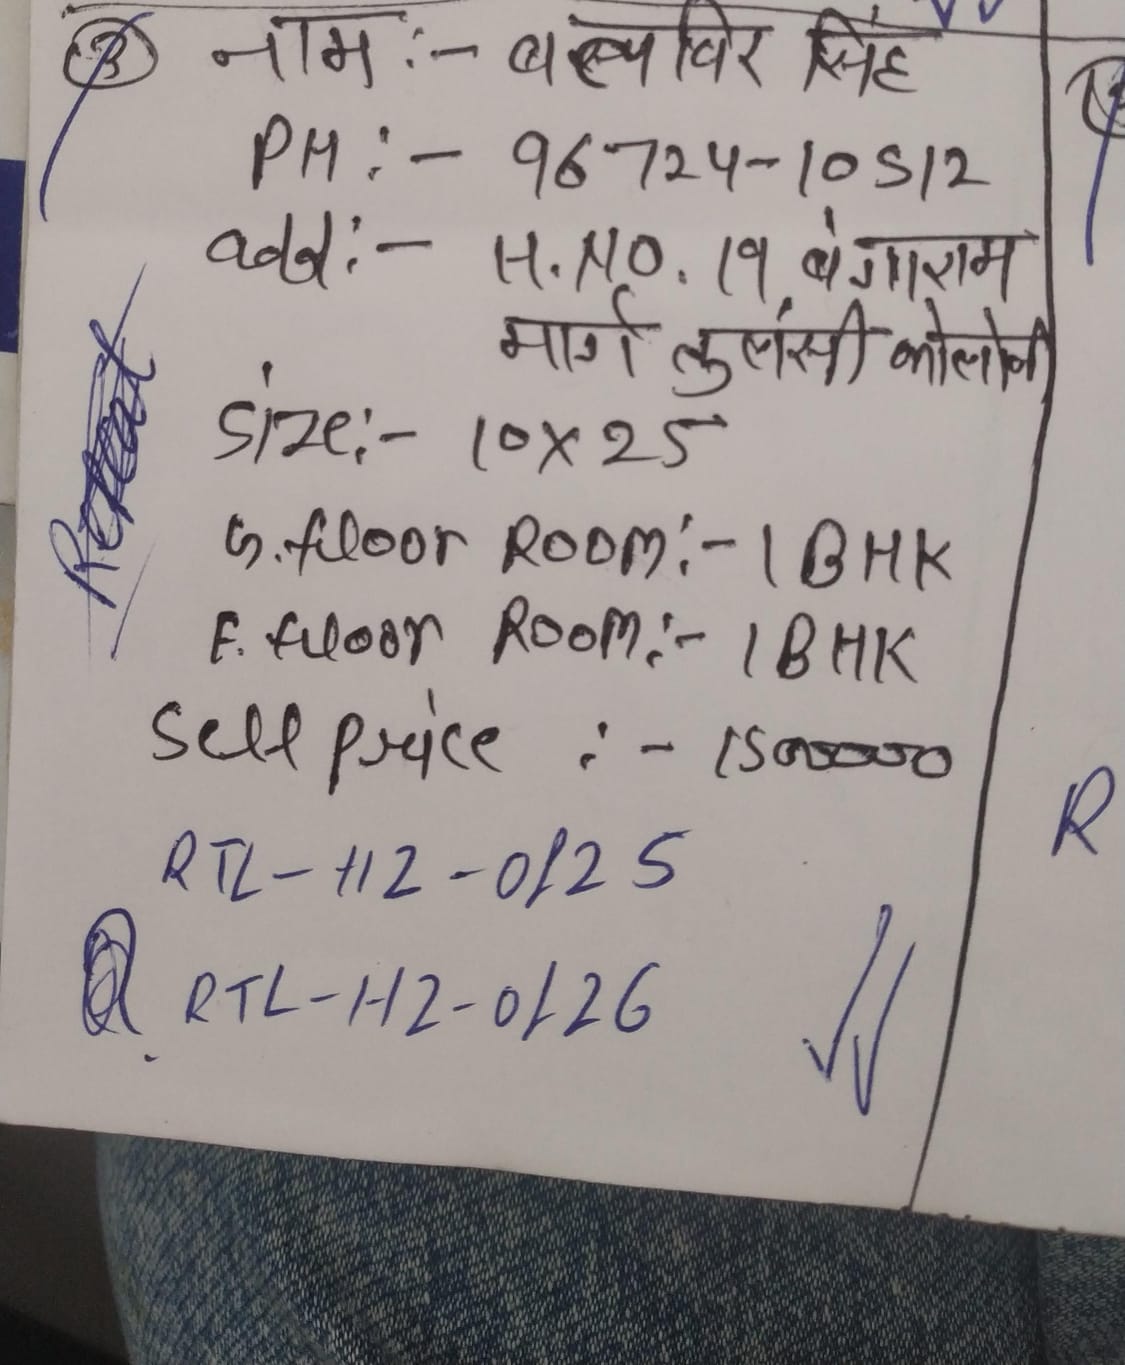 ③ नाम :- बलवीर सिंह
PH :- 96724-10512
add :- H.NO. 19, बंगाराम
मार्ग तुलसी कोलोनी
Size :- 10x25
G. floor Room :- 1 BHK
F. floor Room :- 1 BHK
Sell price : - 1500000
RTL-HZ-0125
RTL-HZ-0126
R